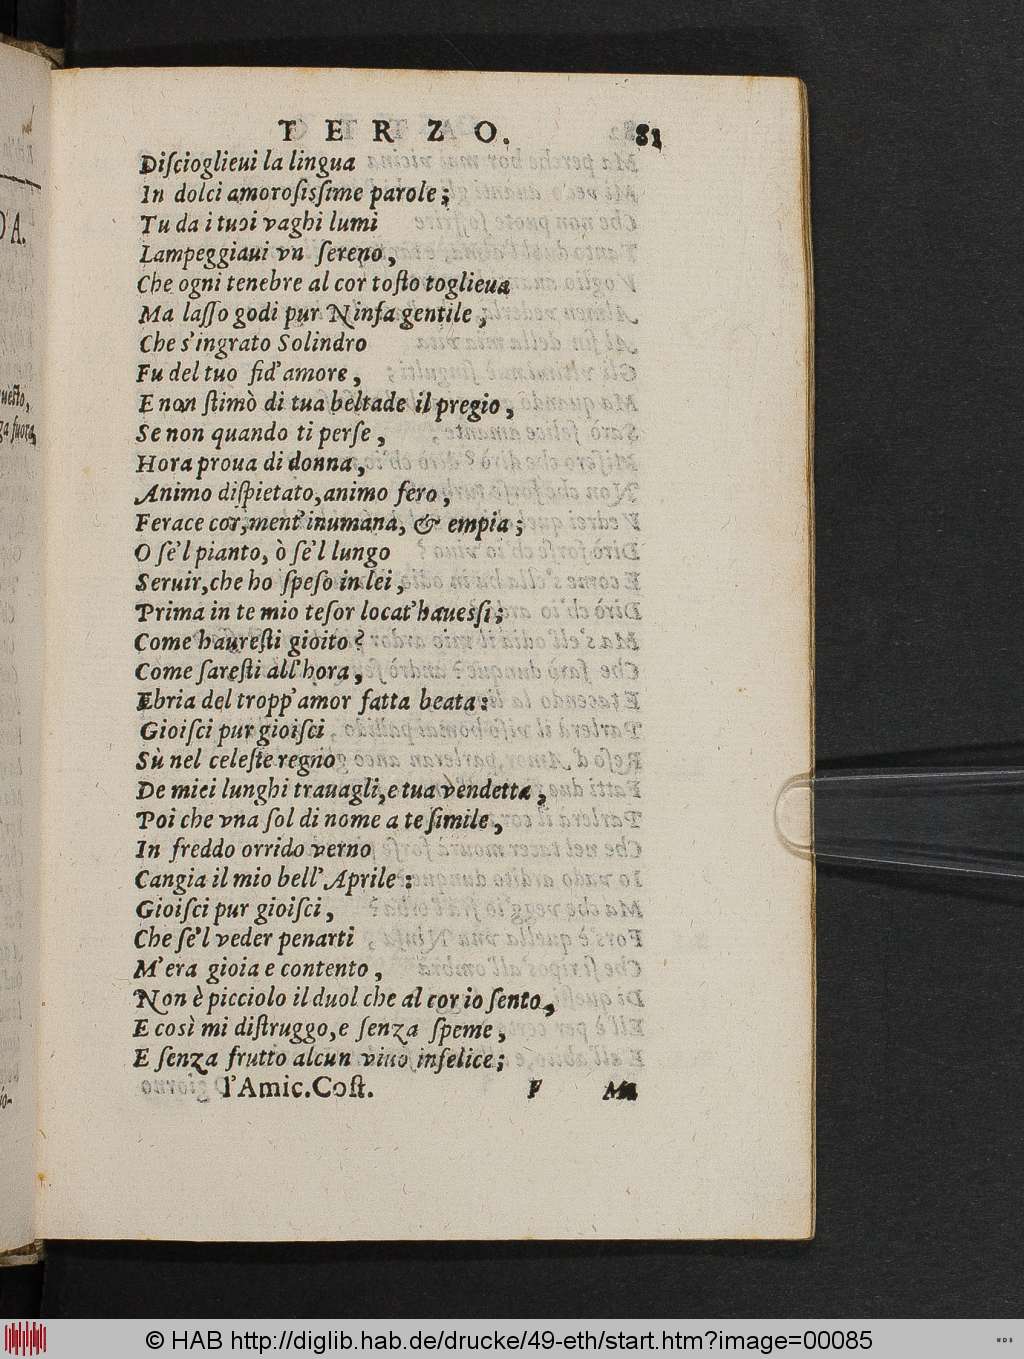 TERZO. 81
Diſcioglieui la lingua
In dolci amoroſiſsime parole;
Tu da i tuoi vaghi lumi
Lampeggiaui vn ſereno,
Che ogni tenebre al cor toſto toglieua
Ma laſſo godi pur Ninfa gentile,
Che s'ingrato Solindro
Fu del tuo fid'amore,
E non ſtimò di tua beltade il pregio,
Se non quando ti perſe,
Hora proua di donna,
Animo diſpietato, animo fero,
Ferace cor, ment'inumana, & empia;
O ſe'l pianto, ò ſe'l lungo
Seruir, che ho ſpeſo in lei,
Prima in te mio teſor locat'haueſsi;
Come haureſti gioito?
Come ſareſti all'hora,
Ebria del tropp'amor fatta beata:
Gioiſci pur gioiſci
Sù nel celeſte regno
De miei lunghi trauagli, e tua vendetta,
Poi che vna ſol di nome a te ſimile,
In freddo orrido verno
Cangia il mio bell'Aprile:
Gioiſci pur gioiſci,
Che ſe'l veder penarti
M'era gioia e contento,
Non è picciolo il duol che al cor io ſento,
E così mi diſtruggo, e ſenza ſpeme,
E ſenza frutto alcun viuo infelice;
l'Amic. Coſt. F Ma
D'A.
queſto,
ga fuora,
© HAB http://diglib.hab.de/drucke/49-eth/start.htm?image=00085
WDB